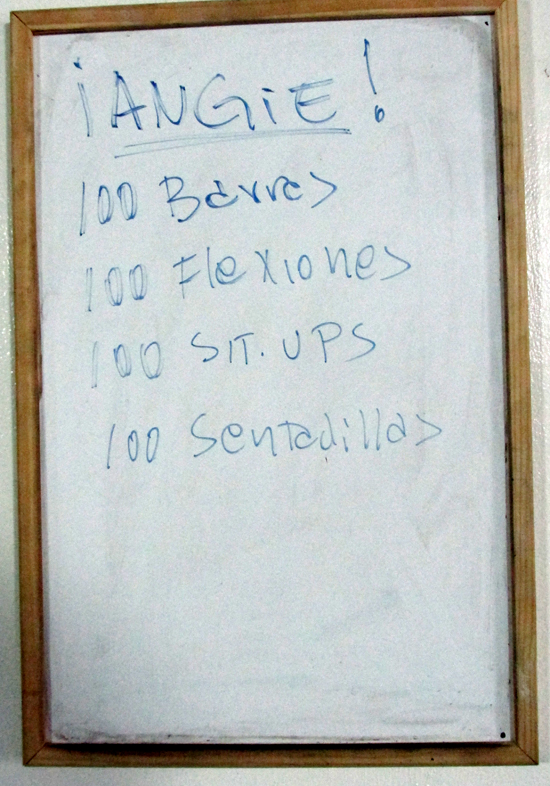 ¡ANGiE!
100 Barras
100 Flexiones
100 SIT.UPS
100 Sentadillas